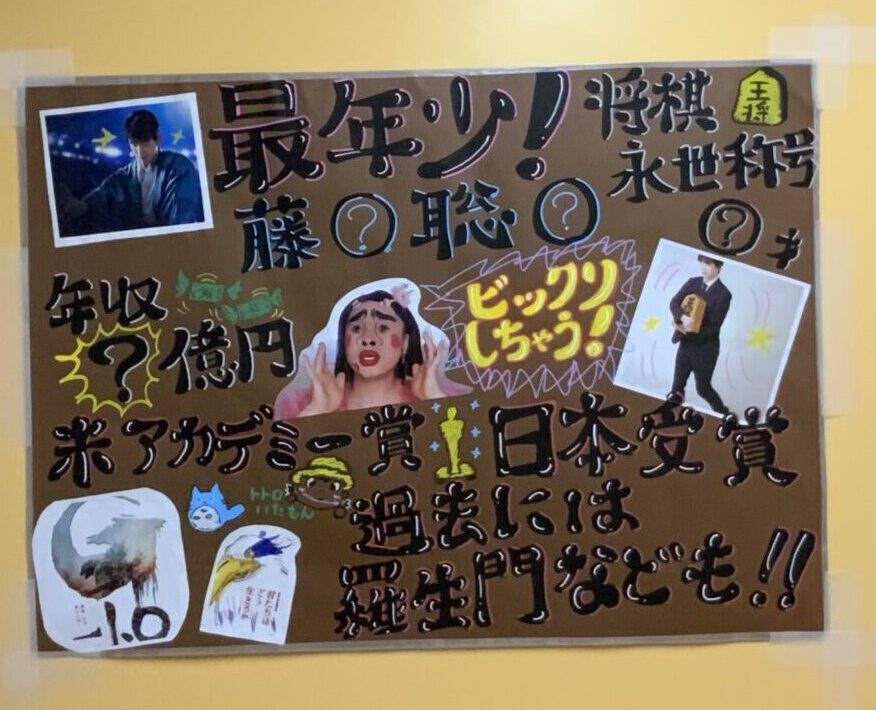 最年少!
将棋
王将
永世称号
?
藤?聡?
年収
?億円
ビックリ
しちゃう!
米アカデミー賞
日本受賞
トトロ
いたもん
過去には
羅生門なども!!
-1.0
君たちは
どう
生きるか